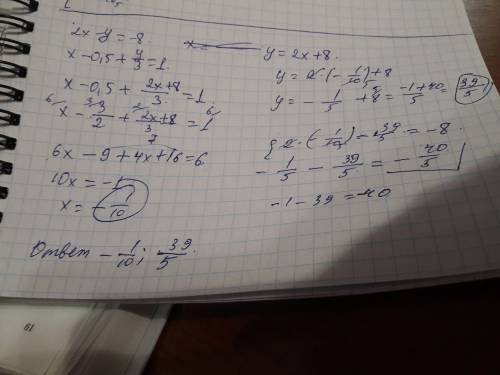 2x-y=-8
x-0,5+y/3=1.
x-0,5+(2x+8)/3=1
x-3/2+(2x+8)/3=1
6x-9+4x+16=6.
10x=-1
x=-1/10
Ответ -1/10; 39/5.
y=2x+8.
y=2·(-1/10)+8
y=-1/5+8=(-1+40)/5=39/5
2·(-1/10)-39/5=-8.
-1/5-39/5=-40/5
-1-39=-40